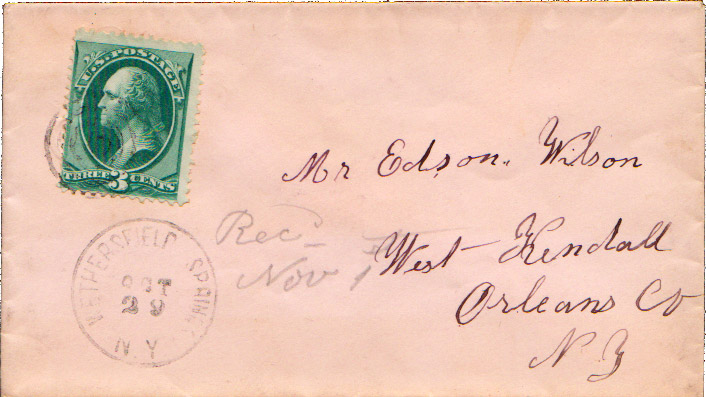 U.S. POSTAGE
THREE 3 CENTS
Mr Edson. Wilson
West Kendall
Orleans Co
N Y
Rec.
Nov 1
WETHERSFIELD SPRINGS
OCT
29
N Y